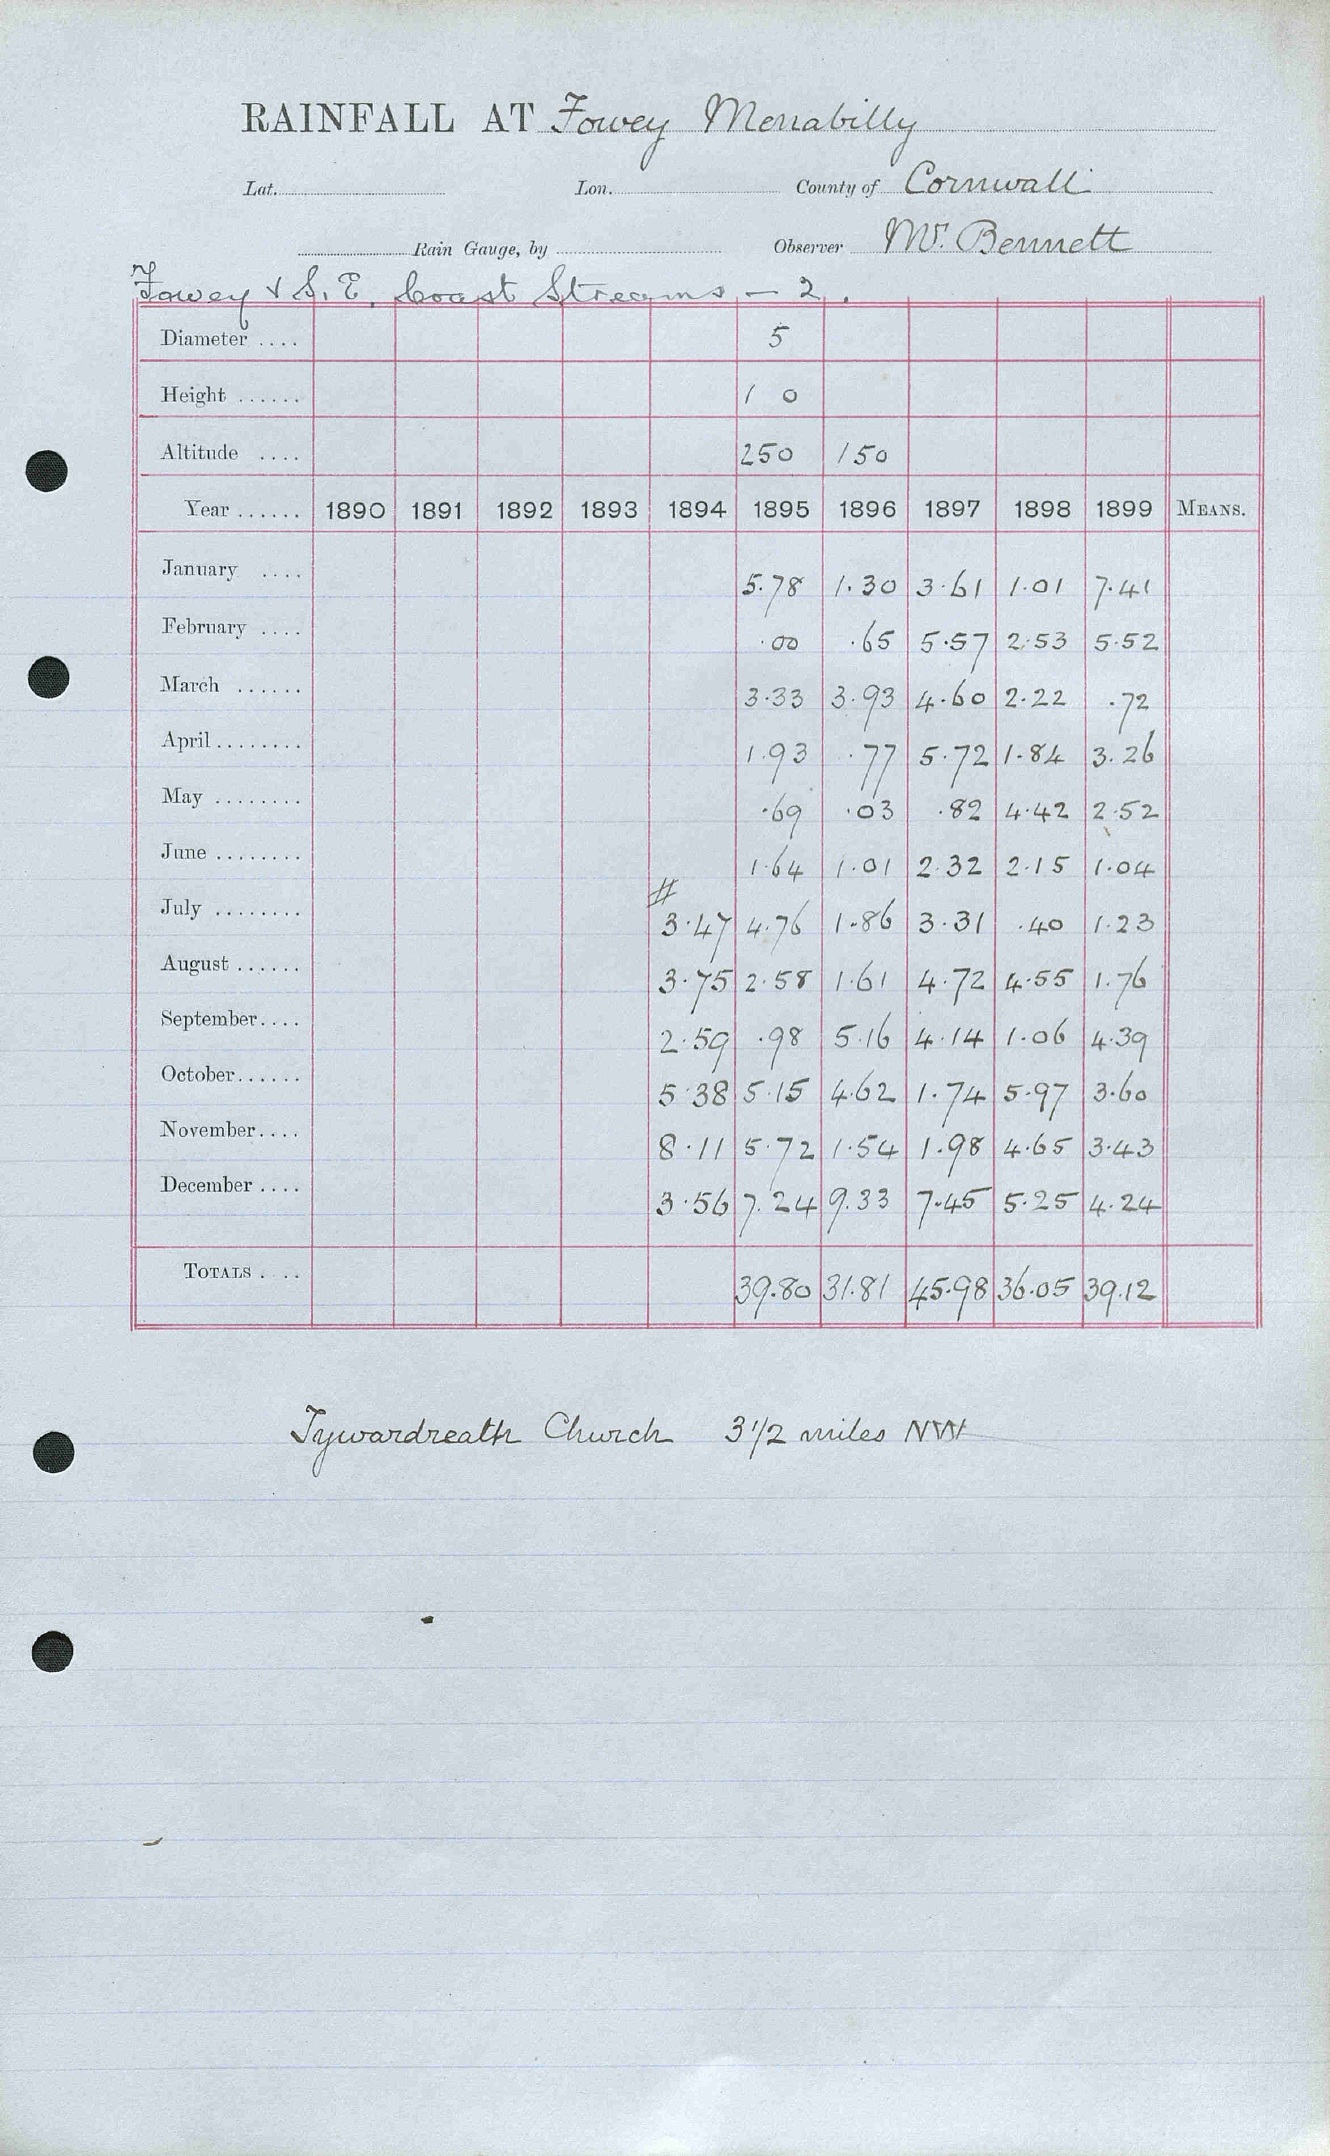 RAINFALL AT Fowey Menabilly
Lat. Lon. County of Cornwall
Rain Gauge, by Observer Mr. Bennett
Fowey & S. E. Coast Streams — 2.
Diameter .... 5
Height ...... 1 0
Altitude .... 250 150
Year ...... 1890 1891 1892 1893 1894 1895 1896 1897 1898 1899 MEANS.
January .... 5.78 1.30 3.61 1.01 7.41
February .... .00 .65 5.57 2.53 5.52
March ...... 3.33 3.93 4.60 2.22 .72
April ........ 1.93 .77 5.72 1.84 3.26
May ........ .69 .03 .82 4.42 2.52
June ........ 1.64 1.01 2.32 2.15 1.04
#
July ........ 3.47 4.76 1.86 3.31 .40 1.23
August ...... 3.75 2.58 1.61 4.72 4.55 1.76
September.... 2.59 .98 5.16 4.14 1.06 4.39
October...... 5.38 5.15 4.62 1.74 5.97 3.60
November.... 8.11 5.72 1.54 1.98 4.65 3.43
December .... 3.56 7.24 9.33 7.45 5.25 4.24
TOTALS .... 39.80 31.81 45.98 36.05 39.12
Tywardreath Church 3 1/2 miles NW